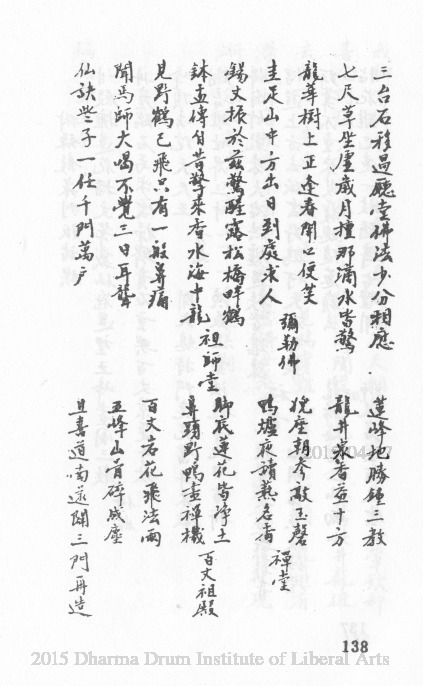 三台石移過聽堂佛法少分相應
七尺草坐虛歲月撞那滴水皆驚
龍華樹上正逢春開口便笑
圭足山中方出日到處求人
彌勒佛
錫丈振於茲驚醒露松橋畔鶴
鉢盂傳自昔擎來香水海中龍
祖師堂
見野鶴已飛只有一般鼻痛
聞馬師大喝不覺三日耳聾
仙訣些子一任千門萬戶
蓮峰地勝鍾三教
龍井家香並十方
猊座朝參敲玉磬
鴨爐夜讀熱名香
禪堂
腳底蓮花皆淨土
鼻頭野鴨盡禪機
百丈祖殿
百丈岩花飛法雨
五峰山骨碎成塵
且喜道喃遂開三門再造
138
2015 Dharma Drum Institute of Liberal Arts